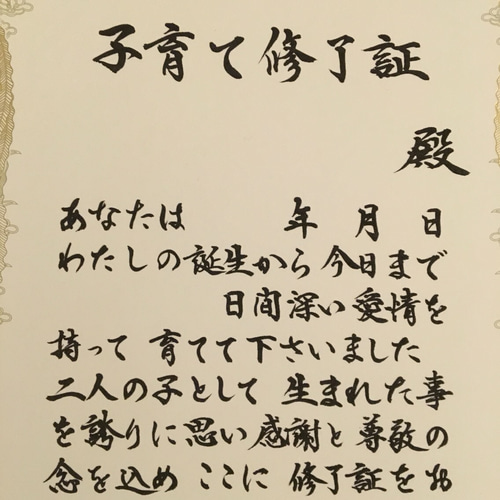 子育て修了証
殿
あなたは 年 月 日
わたしの誕生から今日まで
日間深い愛情を
持って 育てて下さいました
二人の子として 生まれた事
を誇りに思い感謝と尊敬の
念を込め ここに 修了証をお